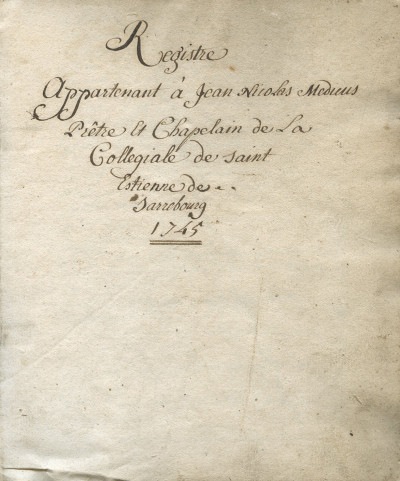 Registre
Appartenant à Jean Nicolas Medicus
Prêtre Et Chapelain de La
Collegiale de saint
Estienne de..
Sarrebourg
1745